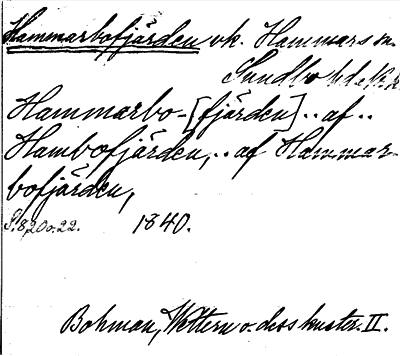 Hammarbofjärden vk. Hammars sn.
Sundbo hd.
Hammarbo-[fjärden] .. af ..
Hambofjärden, .. af Hammar-
bofjärden,
S. 8, 20 o. 22. 1840.
Bohman, Wettern o. dess kuster. II.